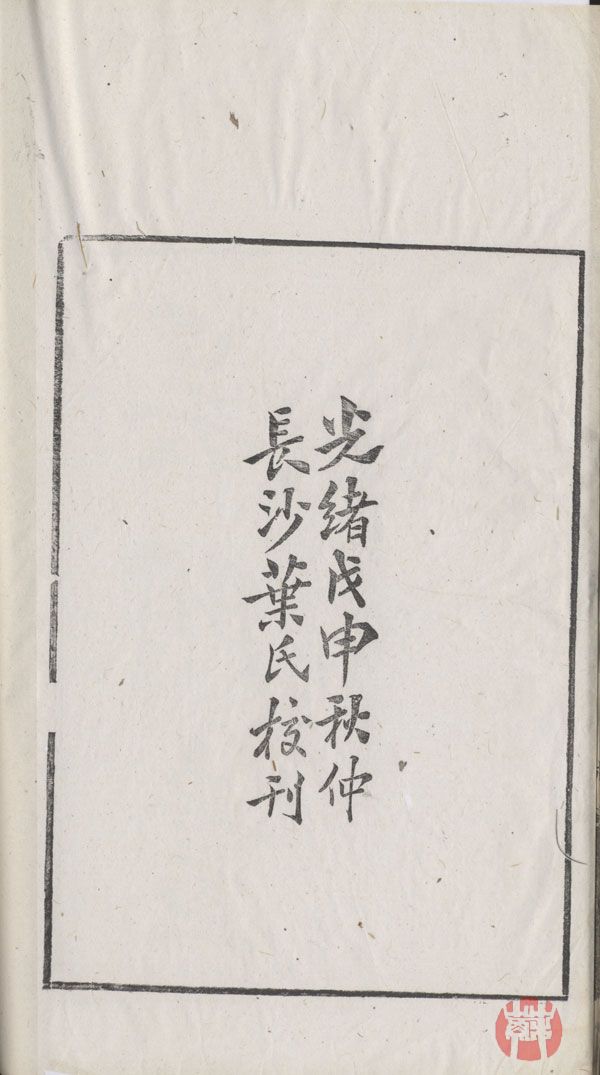 光緒戊申秋仲
長沙葉氏校刊